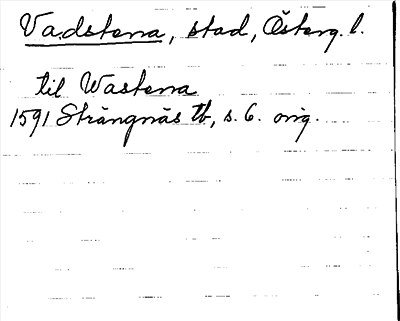 Vadstena, stad, Österg. l.
til Wastena
1591 Strängnäs tb, s. 6. orig.